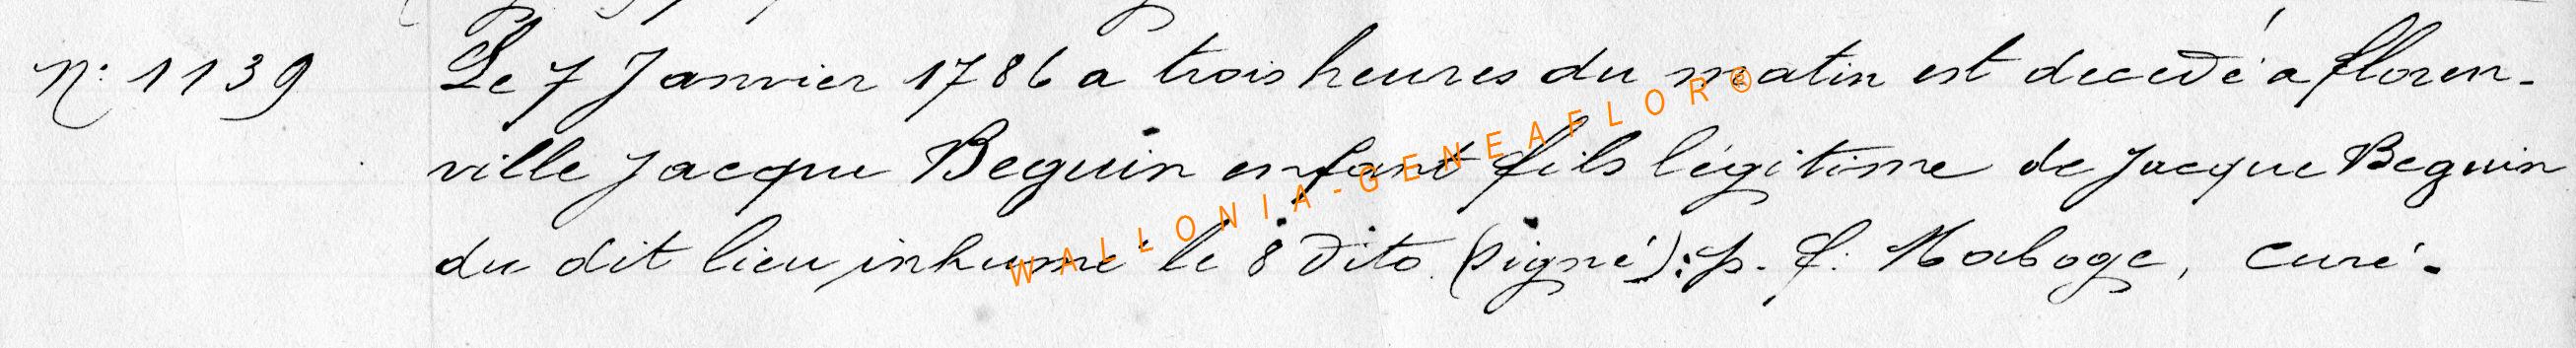 N: 1139 Le 7 Janvier 1786 a trois heures du matin est decedé a floren-
ville Jacque Beguin enfant fils légitime de Jacque Beguin
du dit lieu inhumé le 8 dito. (signé): p. f. Maboge, curé.
WALLONIA-GENEAFLOR®